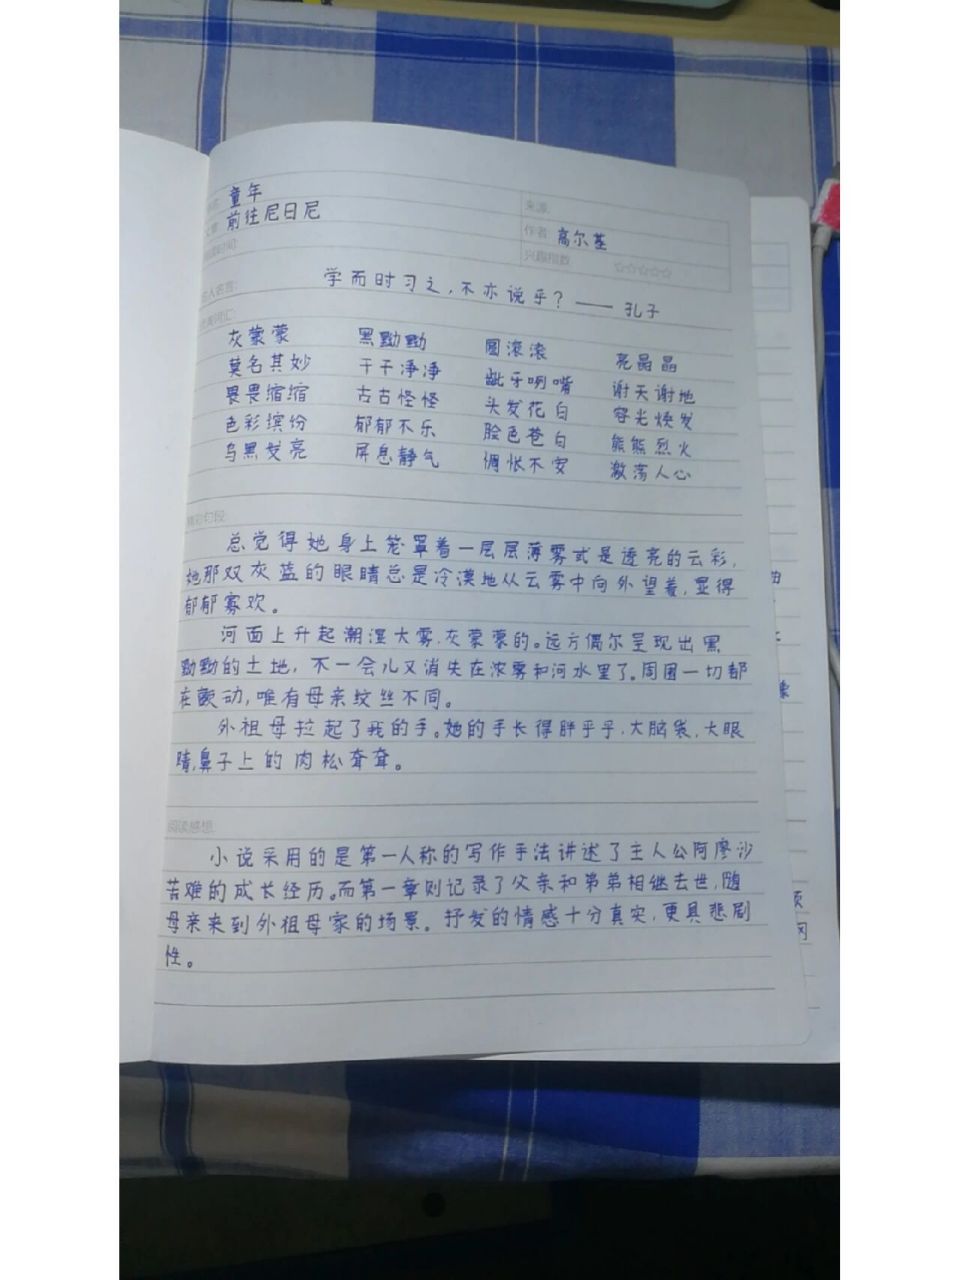 童年
来源:
前往尼日尼
作者: 高尔基
兴趣指数: ☆☆☆☆☆
学而时习之,不亦说乎?——孔子
灰蒙蒙 黑黝黝 圆滚滚 亮晶晶
莫名其妙 干干净净 龇牙咧嘴 谢天谢地
畏畏缩缩 古古怪怪 头发花白 容光焕发
色彩缤纷 郁郁不乐 脸色苍白 熊熊烈火
乌黑发亮 屏息静气 惆怅不安 激荡人心
精彩句段:
总觉得她身上笼罩着一层层薄雾或是透亮的云彩,
她那双灰蓝的眼睛总是冷漠地从云雾中向外望着,显得
郁郁寡欢。
河面上升起潮湿大雾,灰蒙蒙的。远方偶尔呈现出黑
黝黝的土地,不一会儿又消失在浓雾和河水里了。周围一切都
在颤动,唯有母亲纹丝不同。
外祖母拉起了我的手。她的手长得胖乎乎,大脑袋,大眼
睛,鼻子上的肉松耷耷。
阅读感想:
小说采用的是第一人称的写作手法讲述了主人公阿廖沙
苦难的成长经历。而第一章则记录了父亲和弟弟相继去世,随
母亲来到外祖母家的场景。抒发的情感十分真实,更具悲剧
性。